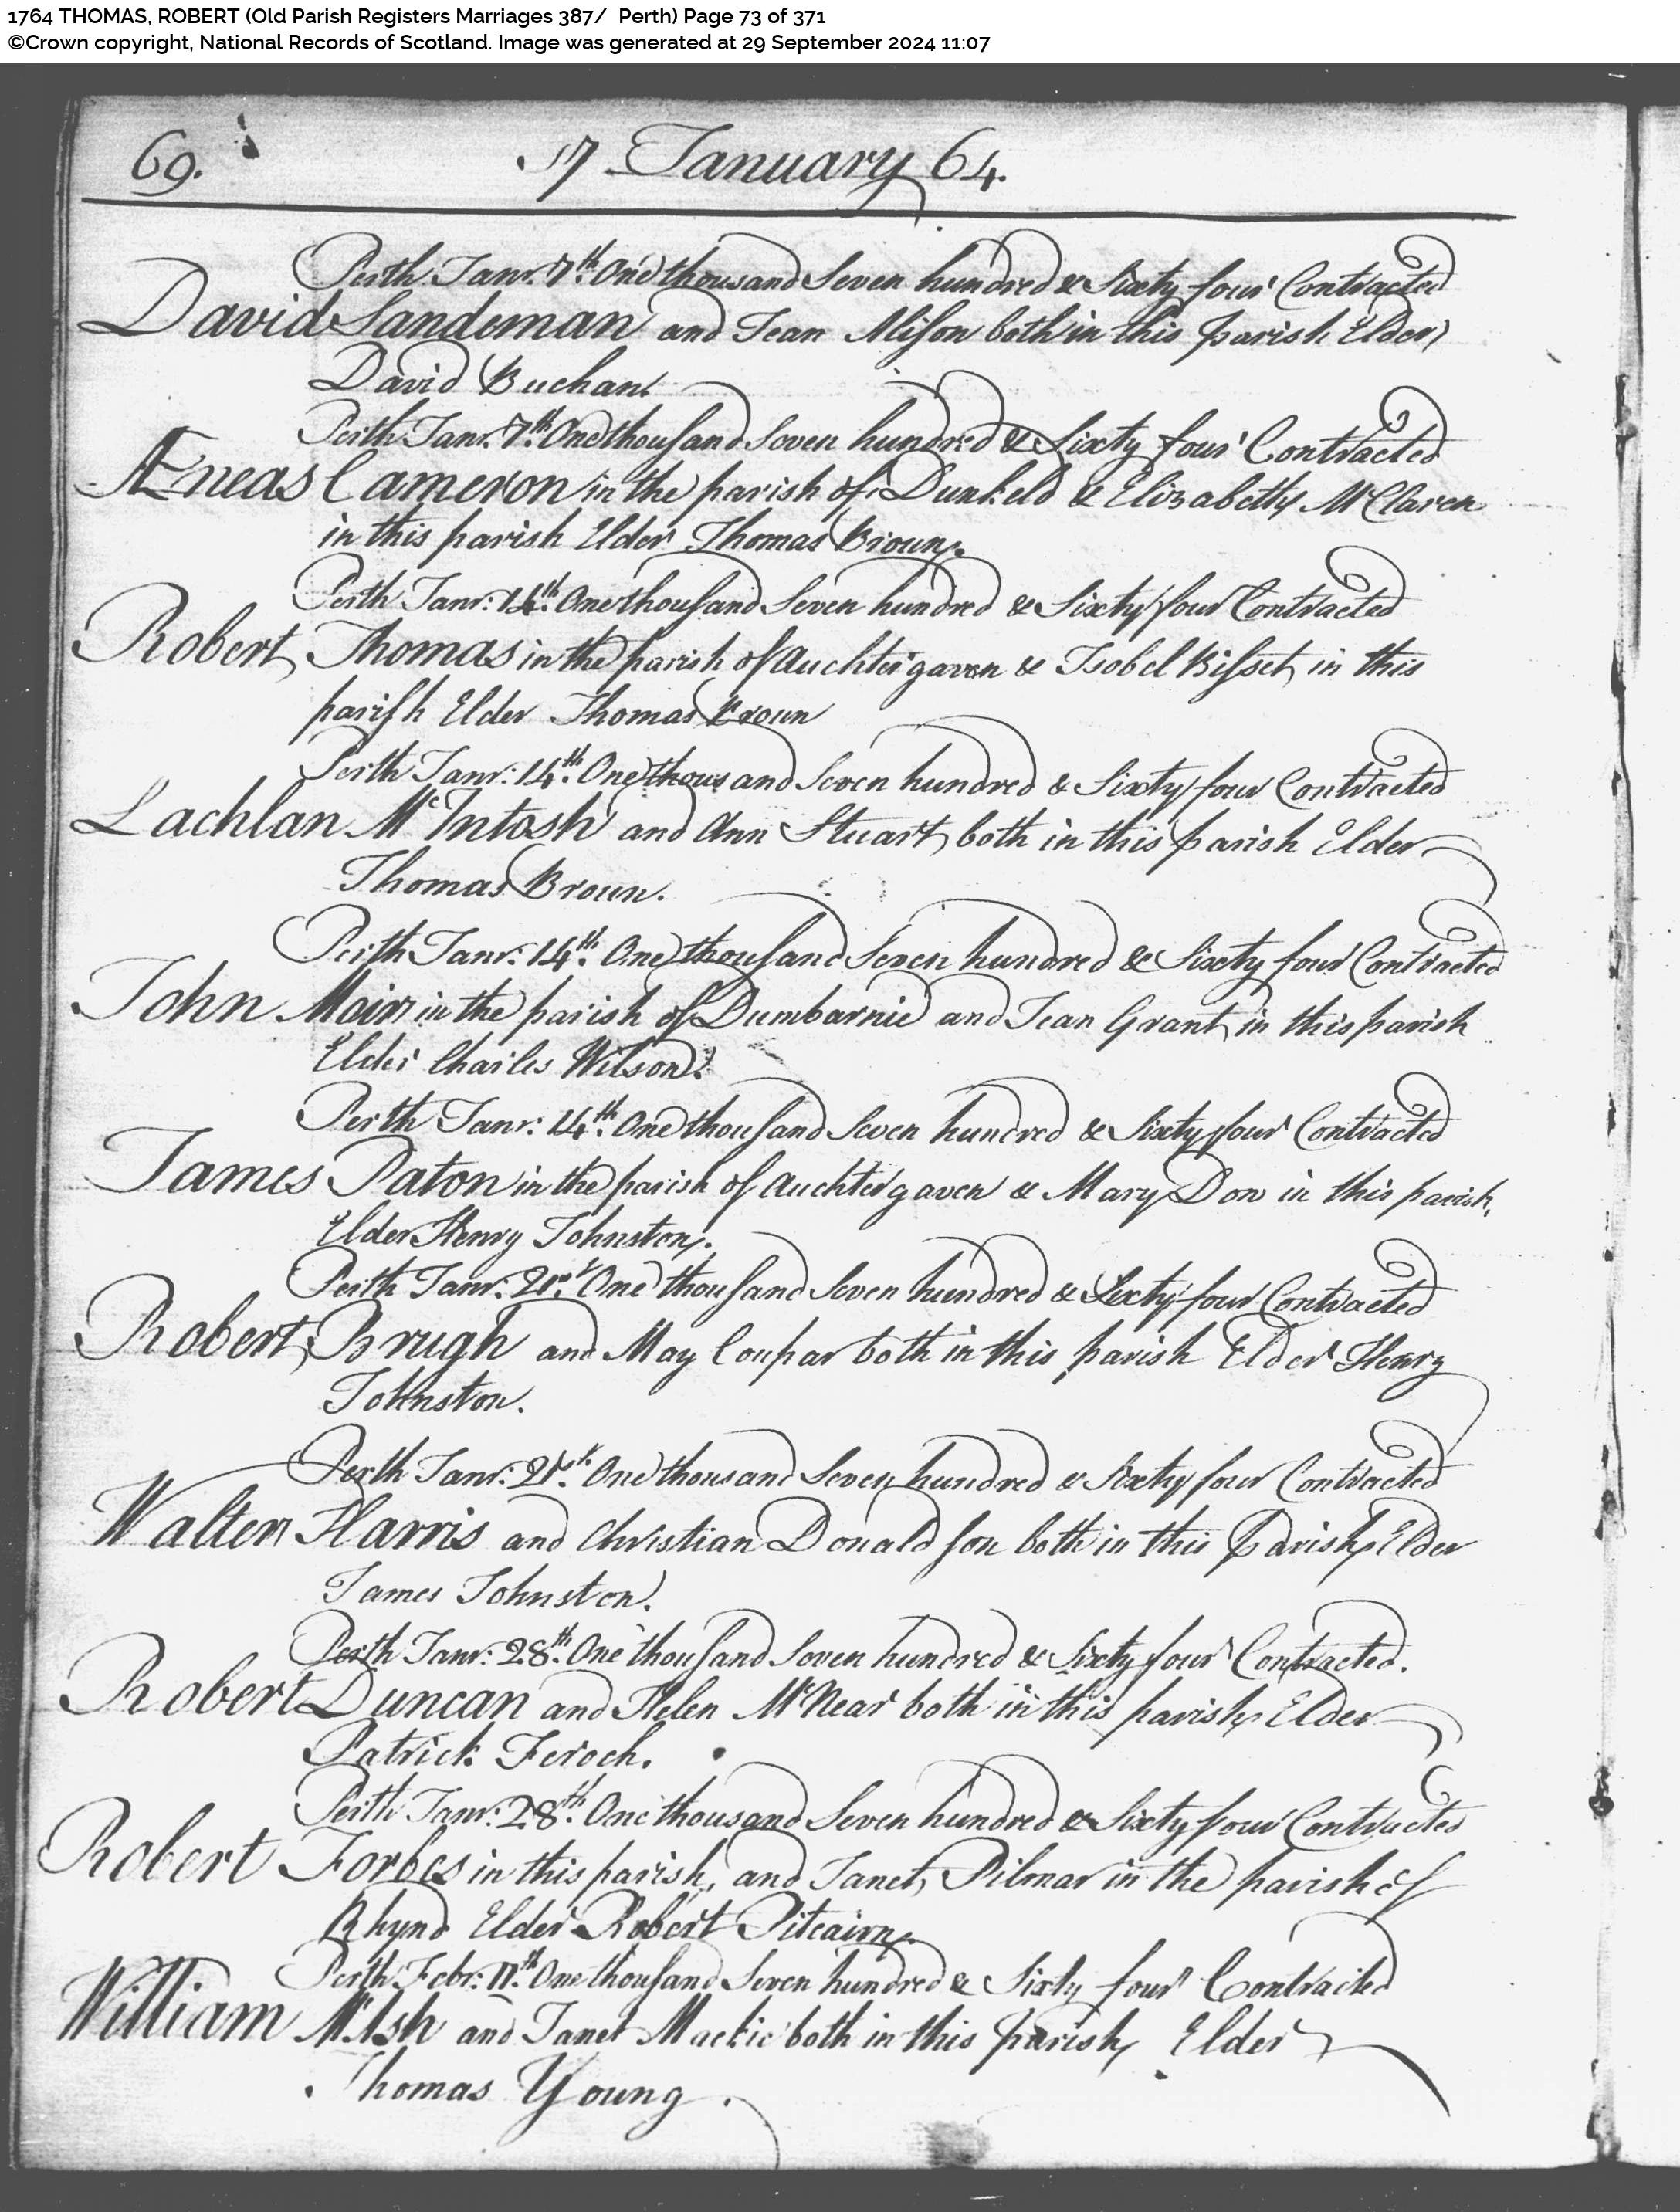 1764 THOMAS, ROBERT (Old Parish Registers Marriages 387/ Perth) Page 73 of 371
©Crown copyright, National Records of Scotland. Image was generated at 29 September 2024 11:07
69. 17 January 64.
Perth Janr. 7th. One thousand Seven hundred & Sixty four Contracted
David Sandeman and Jean Alison both in this parish Elder
David Buchan.
Perth Janr. 7th. One thousand Seven hundred & Sixty four Contracted
Æneas Cameron in the parish of Dunkeld & Elizabeth McClaren
in this parish Elder Thomas Broun.
Perth Janr: 14th. One thousand Seven hundred & Sixty four Contracted
Robert Thomas in the parish of Auchtergaven & Isobel Bisset in this
parish Elder Thomas Broun
Perth Janr: 14th. One thousand Seven hundred & Sixty four Contracted
Lachlan McIntosh and Ann Stuart both in this parish Elder
Thomas Broun.
Perth Janr: 14th. One thousand Seven hundred & Sixty four Contracted
John Moir in the parish of Dumbarnie and Jean Grant in this parish
Elder Charles Wilson.
Perth Janr: 14th. One thousand Seven hundred & Sixty four Contracted
James Paton in the parish of Auchtergaven & Mary Dow in this parish,
Elder Henry Johnston.
Perth Janr: 21st. One thousand Seven hundred & Sixty four Contracted
Robert Brugh and May Coupar both in this parish Elder Henry
Johnston.
Perth Janr: 21st. One thousand Seven hundred & Sixty four Contracted
Walter Harris and Christian Donaldson both in this Parish Elder
James Johnston.
Perth Janr: 28th. One thousand Seven hundred & Sixty four Contracted.
Robert Duncan and Helen McNear both in this parish Elder
Patrick Feroch.
Perth Janr: 28th. One thousand Seven hundred & Sixty four Contracted
Robert Forbes in this parish, and Janet Pilmar in the parish of
Rhynd Elder Robert Pitcairn.
Perth Febr: 11th. One thousand Seven hundred & Sixty four Contracted
William and Janet Mackie both in this parish Elder
Thomas Young.